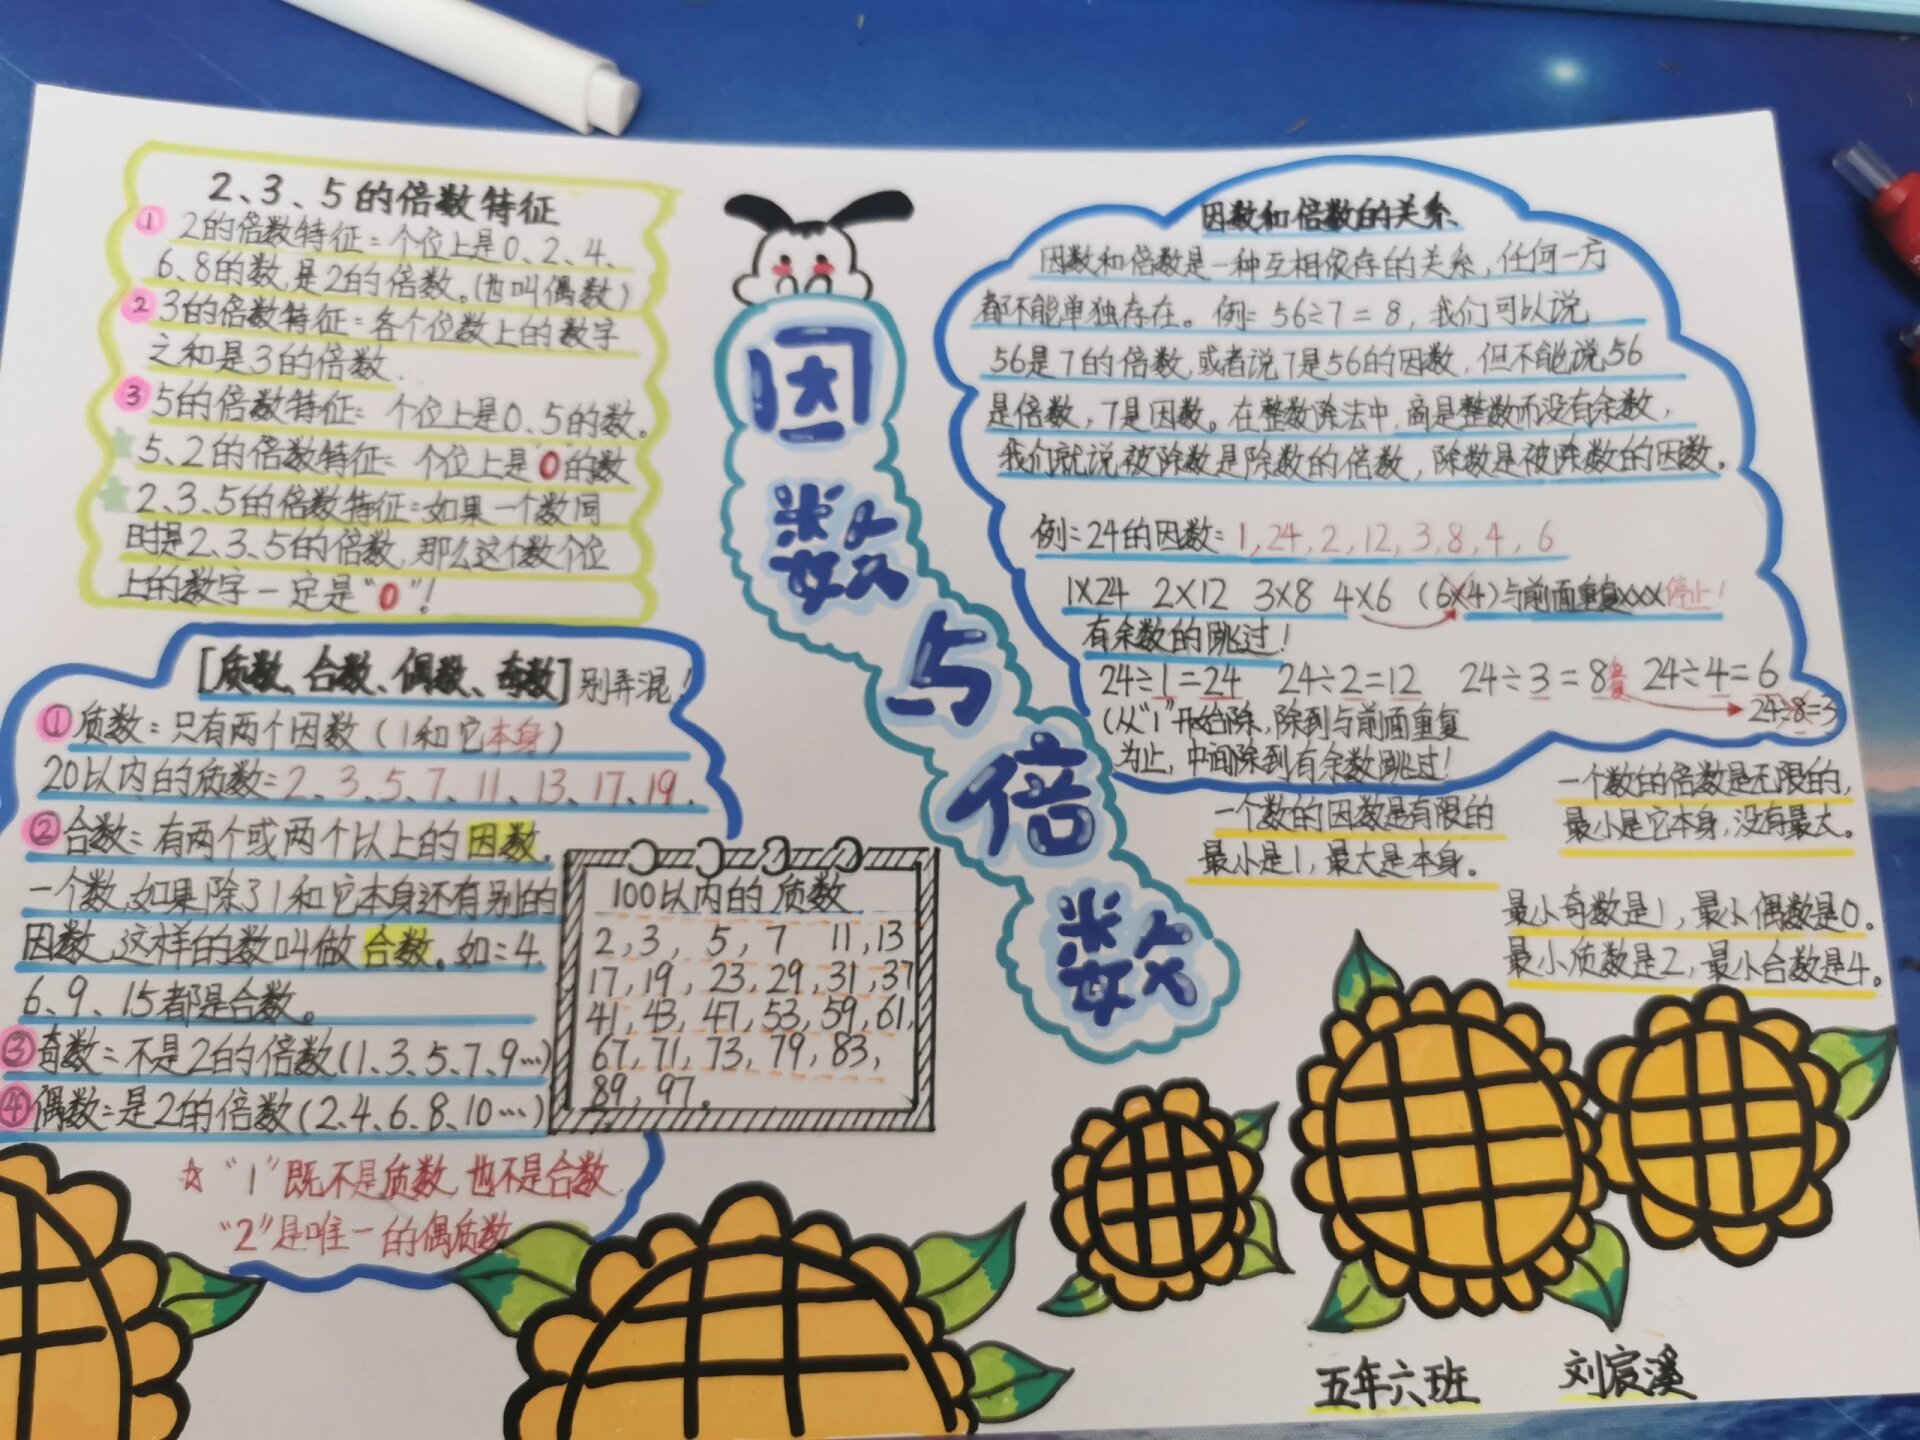 2、3、5的倍数特征
① 2的倍数特征:个位上是0、2、4、
6、8的数,是2的倍数。(也叫偶数)
② 3的倍数特征:各个位数上的数字
之和是3的倍数.
③ 5的倍数特征: 个位上是0、5的数。
5、2的倍数特征: 个位上是0的数
2、3、5的倍数特征:如果一个数同
时是2、3、5的倍数,那么这个数个位
上的数字一定是“0”!
[质数、合数、偶数、奇数]别弄混!
①质数:只有两个因数(1和它本身)
20以内的质数:2、3、5、7、11、13、17、19.
②合数:有两个或两个以上的因数。
一个数,如果除了1和它本身还有别的
因数,这样的数叫做合数。如:4、
6、9、15都是合数。
③奇数:不是2的倍数(1、3、5、7、9…)
④偶数:是2的倍数(2、4、6、8、10…)
☆“1”既不是质数,也不是合数.
“2”是唯一的偶质数
100以内的质数
2,3, 5,7 11,13
17,19, 23,29,31,37
41,43,47,53,59,61,
67,71,73,79,83,
89,97。
因
数
与
倍
数
因数和倍数的关系
因数和倍数是一种互相依存的关系,任何一方
都不能单独存在。例:56÷7=8,我们可以说
56是7的倍数,或者说7是56的因数,但不能说56
是倍数,7是因数。在整数除法中,商是整数而没有余数,
我们就说被除数是除数的倍数,除数是被除数的因数。
例:24的因数:1,24,2,12,3,8,4,6
1×24 2×12 3×8 4×6 (6×4)与前面重复xxx停止!
有余数的跳过!
24÷1=24 24÷2=12 24÷3=8 24÷4=6
24÷8=3
(从“1”开始除,除到与前面重复
为止,中间除到有余数跳过!
一个数的因数是有限的
最小是1,最大是本身。
一个数的倍数是无限的,
最小是它本身,没有最大。
最小奇数是1,最小偶数是0。
最小质数是2,最小合数是4。
五年六班 刘宸溪